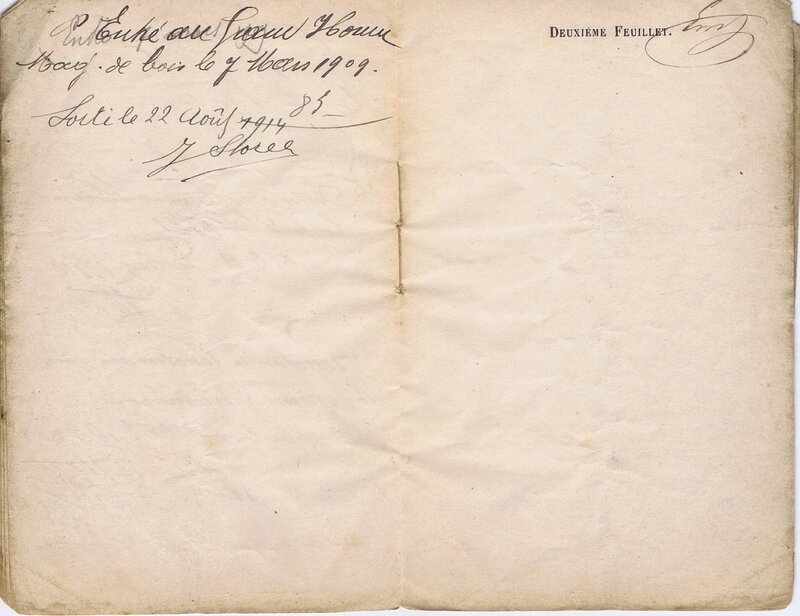 Entré au
Mag. de bois le 7 Mars 1909.
Sorti le 22 Août 1914 85
J Storer
DEUXIÉME FEUILLET.